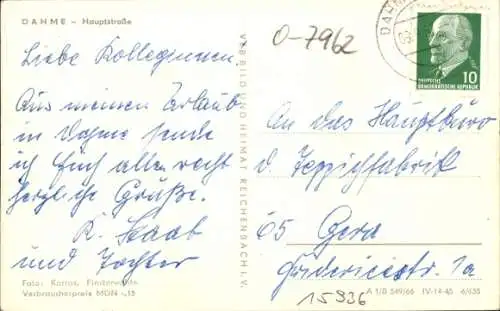 DAHME – Hauptstraße
O-7962
DAHME
10
DEUTSCHE
DEMOKRATISCHE REPUBLIK
Liebe Kolleginnen.
Aus meinem Urlaub
in Dahme sende
ich Euch allen recht
herzliche Grüße.
K. Staab
und Tochter
Foto: Karras, Finsterwalde
Verbraucherpreis MDN -,15
VEB BILD UND HEIMAT REICHENBACH I. V.
An das Hauptbüro
d. Teppichfabrik
65 Gera
Friedericistr. 1a
A 1/B 549/66 IV-14-45 6/655
15936